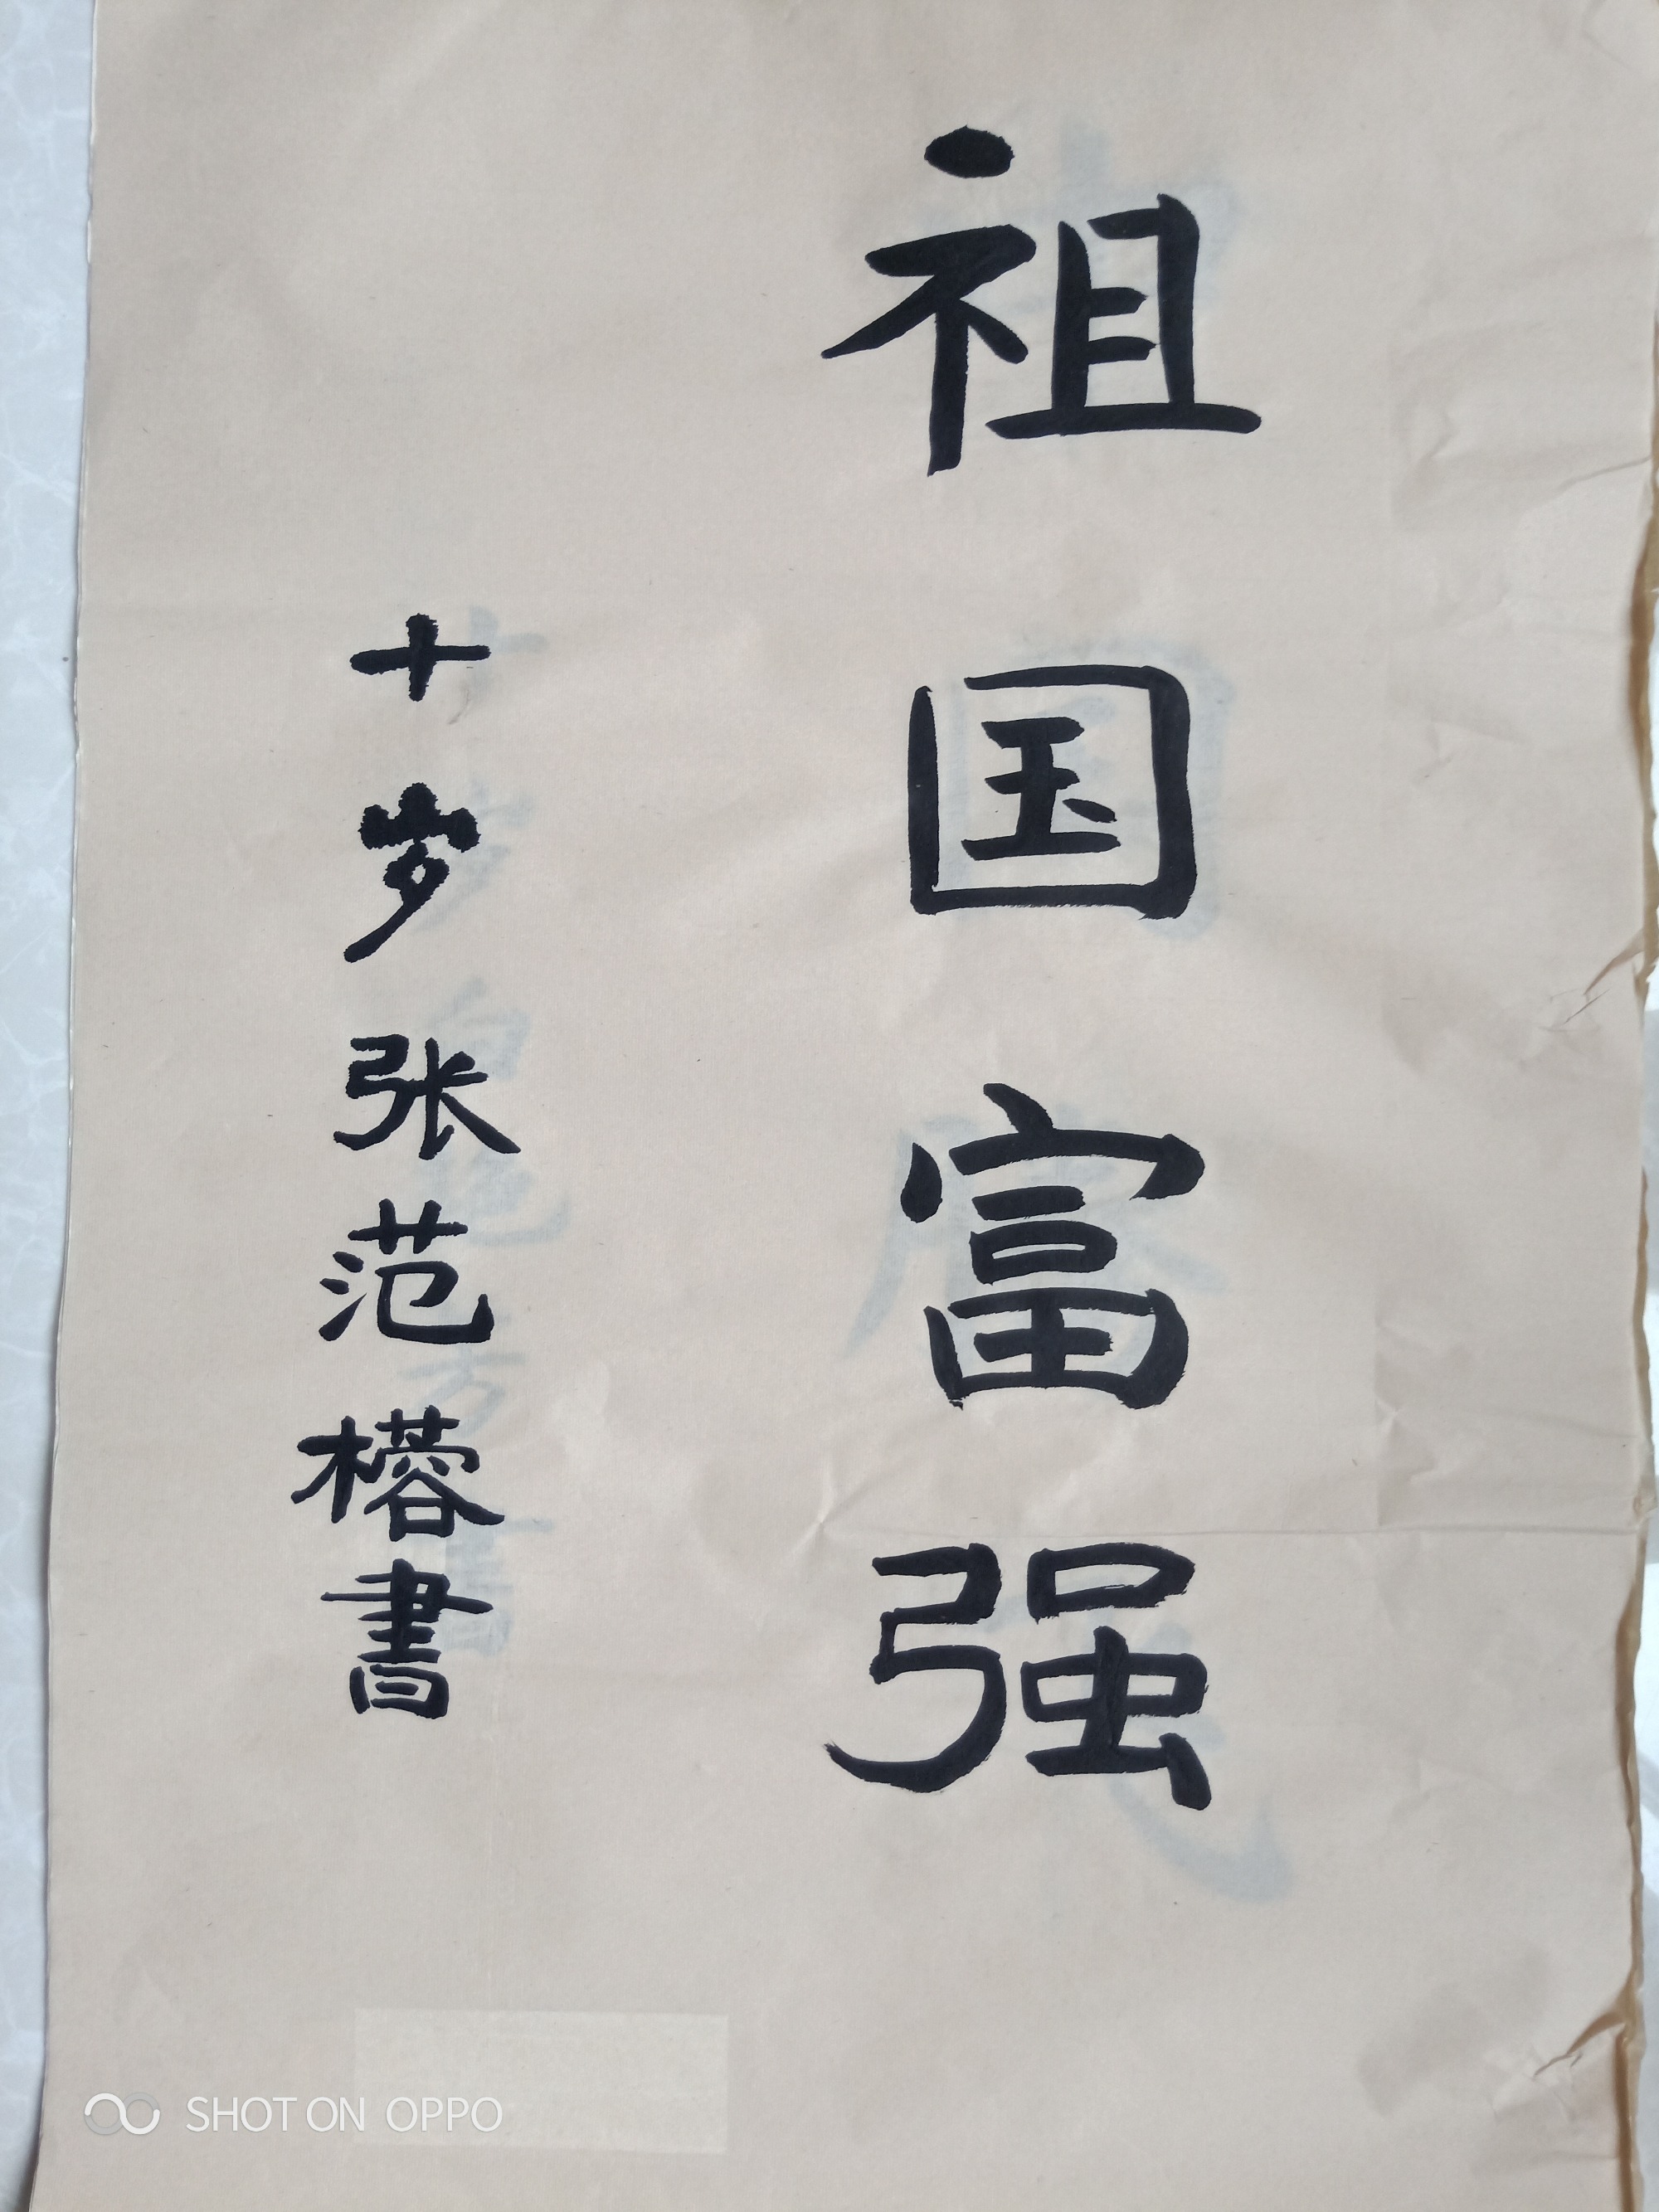 祖国富强
十岁张范榕書
SHOT ON OPPO